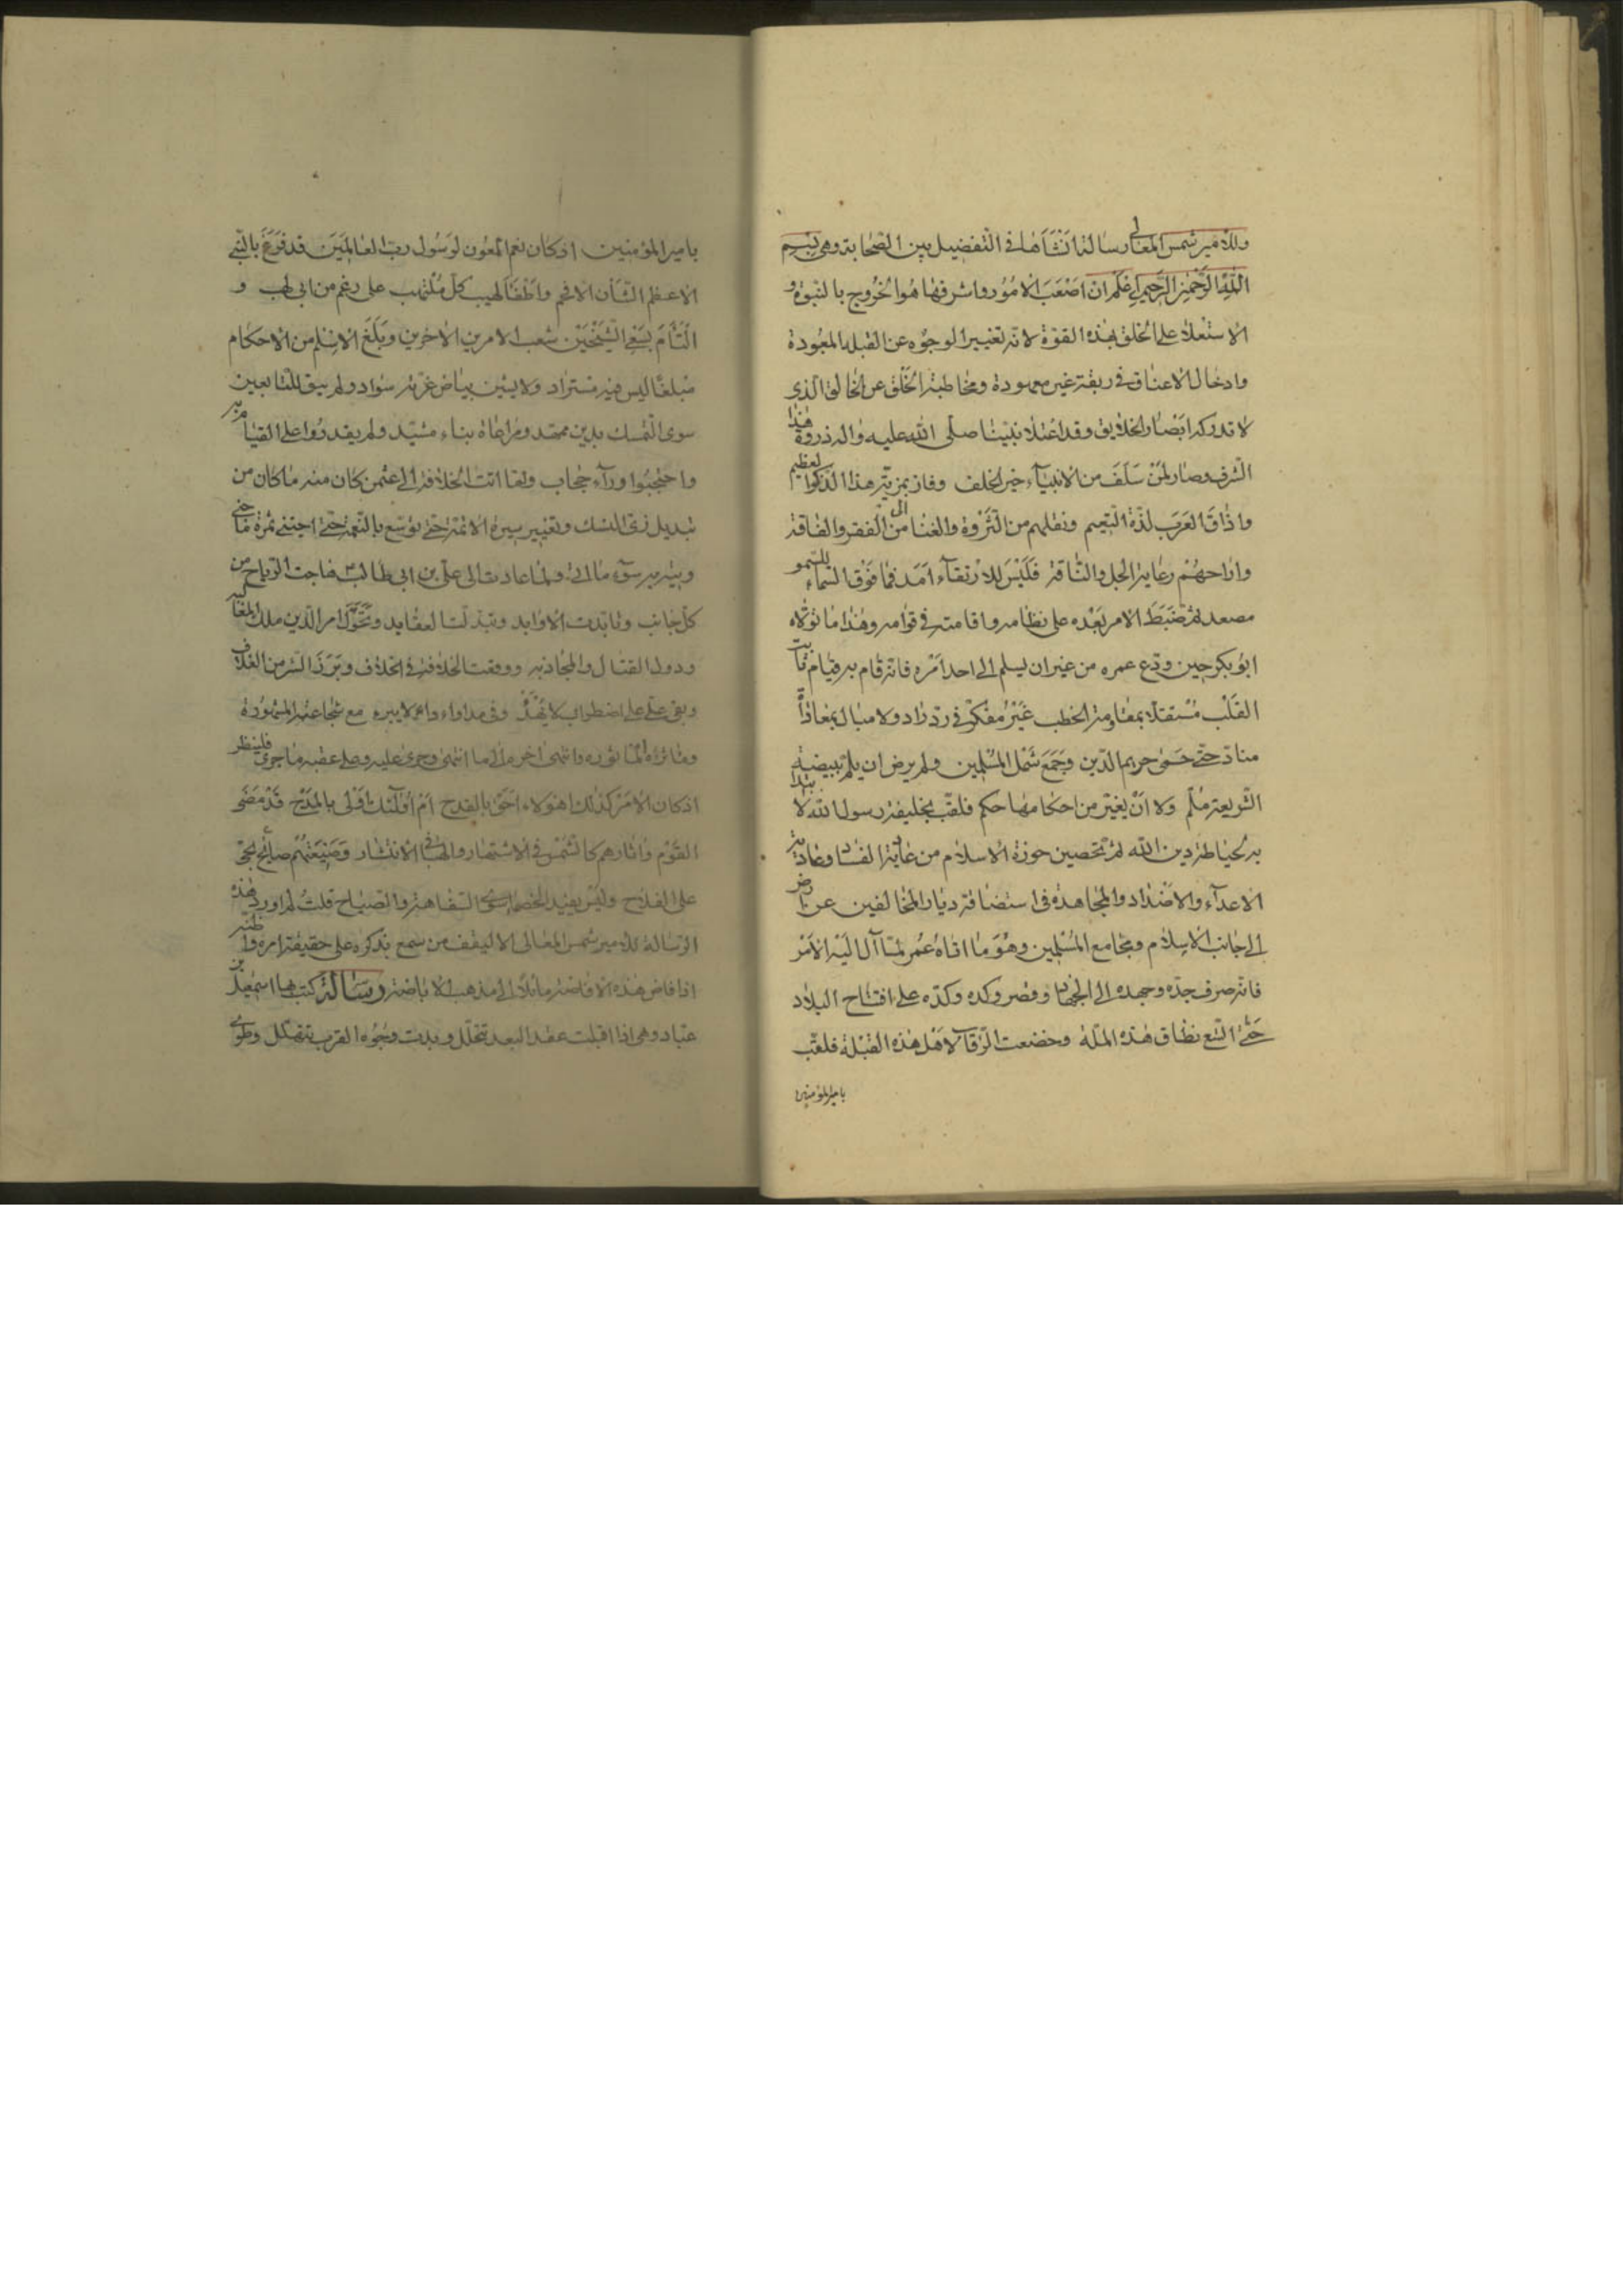 وللامير شمس المعالى رسالة انشأها فى التفضيل بين الصحابة وهى بسم
الله الرحمن الرحيم اعلم ان اصعب الامور واشرفها هو الخروج بالنبوة و
الاستعلاء على الخلق بهذه القوة لانه تغيير الوجوه عن القبلة المعبودة
وادخال الاعناق فى ربقة غير معهودة ومخاطبة الخلق عن الخالق الذى
لا تدركه ابصار الخلايق وقد اعتلا نبينا صلى الله عليه واله ذروة هذا
الشرف وصار لمن سلف من الانبيآء خير الخلف وفاز بمزية هذا الذكر العظيم
واذاق العرب لذة النعيم ونقلهم من الثروة والغنا من الى الفقر والفاقة
وازاحهم رعاية الجمل والناقة فليس للارتقآء امد فما فوق السماء للسمو
مصعد ثم ضبط الامر بعده على نظامه واقامته فى قوامه وهذا ما تولاه
ابو بكر حين ودع عمره من غير ان يسلم الى احد امره فانه قام به قيام ثابت
القلب مستقلا بمقاومة الخطب غير مفكر فى رد راد ولا مبال بمعاداة
مناد حتى حمى حريم الدين وجمع شمل المسلمين ولم يرض ان يلم ببيضة
الشريعة ملم ولا ان يغير من احكامها حكم فلقب بخليفة رسول الله لا
به لحياطة دين الله ثم تحصين حوزة الاسلام من عادية الفساد وعادية
الاعدآء والاضداد والمجاهدة فى استضافة ديار المخالفين عن
الى جانب الاسلام ومجامع المسلمين وهو ما اتاه عمر لما آل اليه الامر
فانه صرف جده وجهده الى الجهاد وقصر وكده وكده على افتتاح البلاد
حتى اتسع نطاق هذه الملة وخضعت الرقاب لاهل هذه القبلة فلقب
بامير المؤمنين
بامير المؤمنين اذ كان نعم المعون لرسول رب العالمين قد فرغ بالنبى
الاعظم الشأن الافخم واطفأ لهيب كل ملتهب على رغم من ابى لهب و
التأم بسعى الشيخين شعب الامرين الاخرين وبلغ الاسلم من الاحكام
مبلغا ليس فيه مستزاد ولا يشين بياض غرته سواد ولم يبق للتابعين
سوى التمسك بدين ممهد ومراعاة بناء مشيد ولم يقدروا على القيام به
واحتجبوا ورآء حجاب ولما اتت الخلافة الى عثمن كان منه ما كان من
تبديل زى النسك وتغيير سيرة الائمة حتى توسع بالنعمة حتى اجتنى ثمرة ما جنى
وبين به سوء ما اتى ولما عادت الى على بن ابى طالب هاجت الرياح من
كل جانب وتابدت الاوابد وتبدلت العقايد وتحول امر الدين ملك المغالبة
ودول القتال والمجاذبة ووقعت الخلافة فى الخلاف وبرز الشر من الغلاف
وبقى على على اضطراب لا يهد وفى مداواة داء لا يبره مع شجاعته المشهودة
ومآثره المأثورة وانتهى اخر ملك ما انتهى وجرى عليه وعلى عقبه ما جرى فلينظر
اذ كان الامر كذلك اهؤلاء احق بالقدح ام اولئك اولى بالمدح قد مضى
القوم واثارهم كالشمس فى الاشتهار والهباء فى الانتشار وصنيعتهم صايح بحى
على الفلاح وليس يفيد الخصم سوى السفاهة والصياح قلت لم اورد هذه
الرسالة للامير شمس المعالى الا ليقف من سمع بذكره على حقيقة امره وانه
اذا فاض هذه الافاضة مائلا الى مذهب الاباضة رسالة كتبها اسمعيل بن
عباد وهى اذا اقبلت عقد البعد تتحلل وبدت وجوه القرب تتهلل وطوى